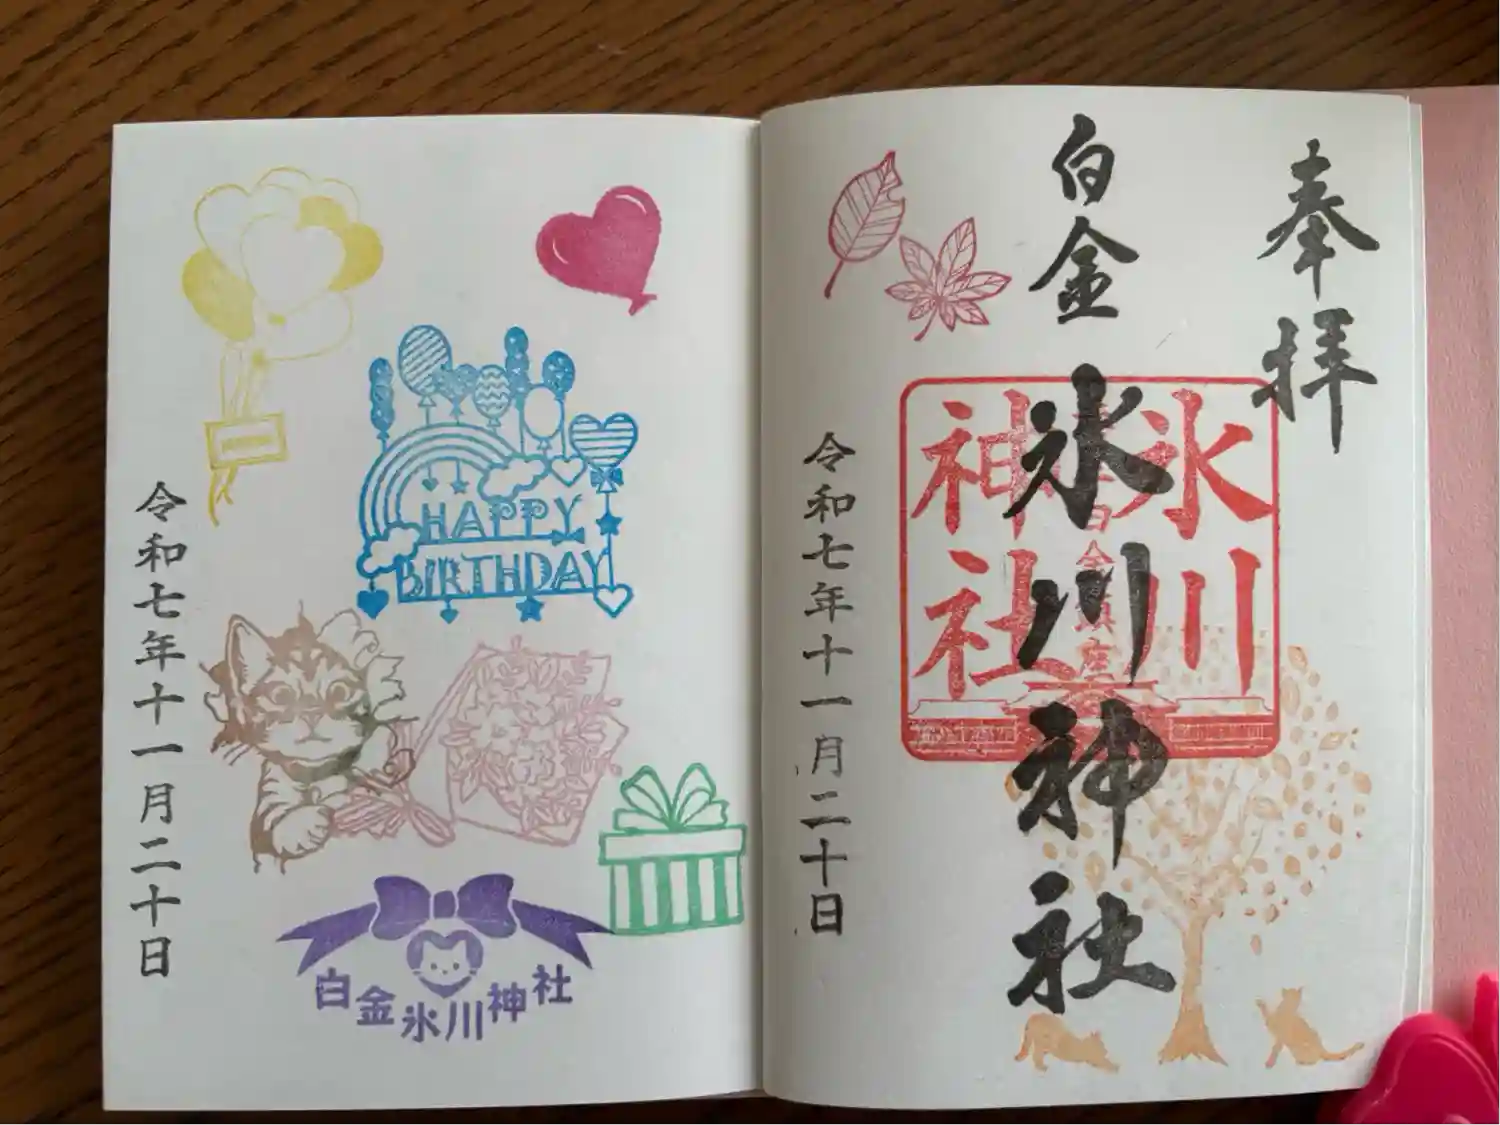 奉拝
白金氷川神社
氷川
神社
白金鎮座
令和七年十一月二十日
HAPPY
BIRTHDAY
白金氷川神社
令和七年十一月二十日